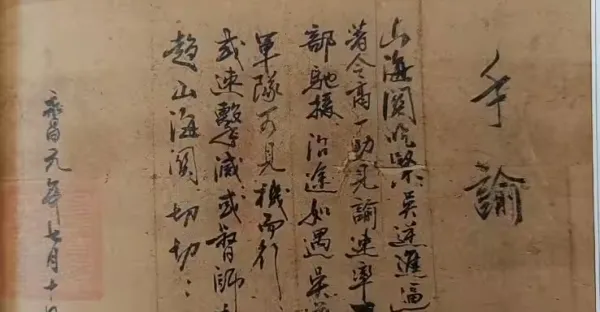 手諭
山海関吃緊吳逆進逼
著令高一功見諭速率
部馳援沿途如遇吳
軍隊可見機而行
或速擊滅或督師
趨山海関切切
昌元年七月十日